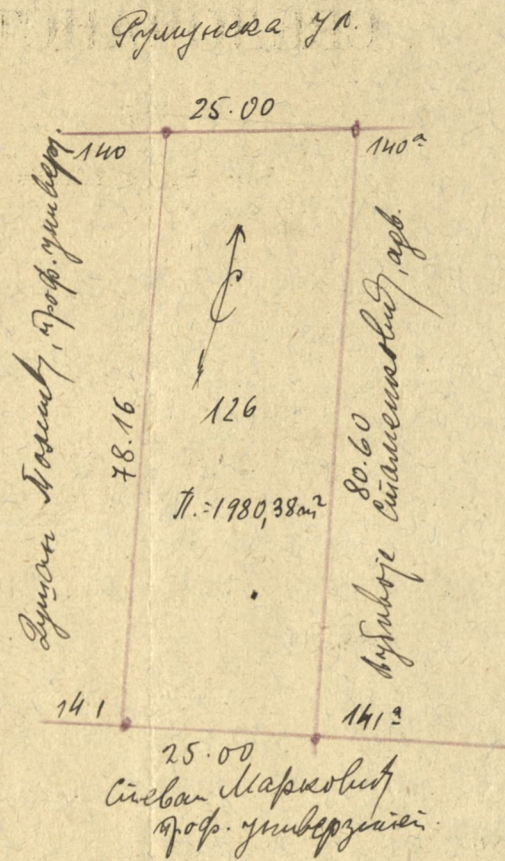 Румунска ул.
25.00
140
140а
Душан Томић, проф. универ.
78.16
126
П.=1980,38м²
80.60
Љубивоје Стаменковић, адв.
141
141а
25.00
Стеван Марковић
проф. универзитет.